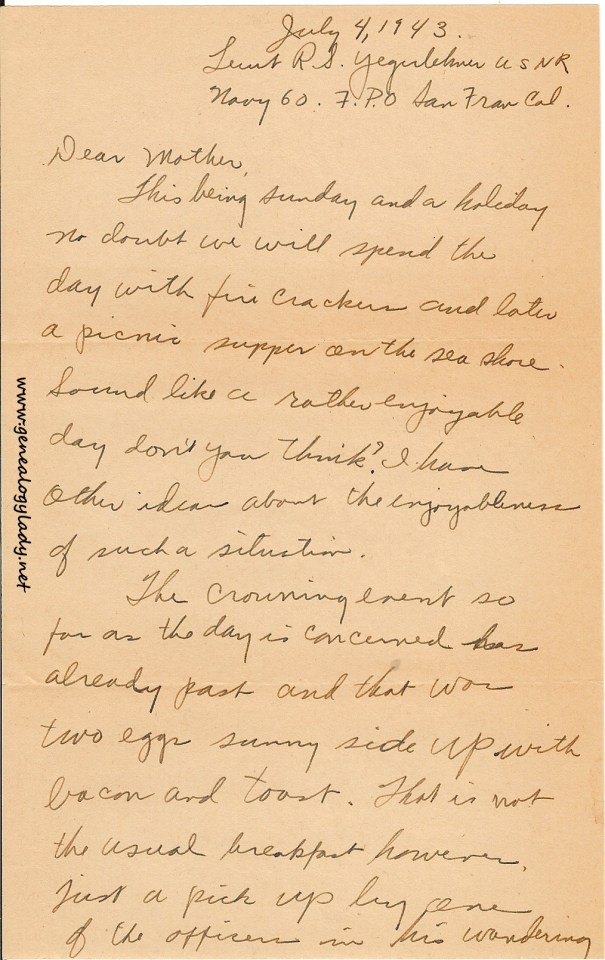 July 4, 1943.
Lieut R.S. Yegerlehner USNR
Navy 60. F.P.O San Fran Cal.
Dear Mother,
This being Sunday and a holiday
no doubt we will spend the
day with fire crackers and later
a picnic supper on the sea shore.
Sound like a rather enjoyable
day don't you think? I have
other ideas about the enjoyableness
of such a situation.
The crowning event so
far as the day is concerned has
already past and that was
two eggs sunny side up with
bacon and toast. That is not
the usual breakfast however,
just a pick up by one
of the officers in his wandering
www.genealogylady.net